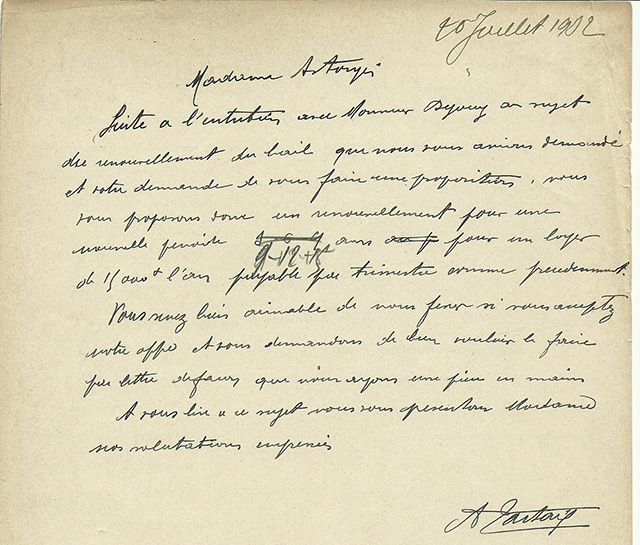 20 Juillet 1902
Madame
Suite a l'entretien avec Monsieur au sujet
du renouvellement du bail que nous vous avions demandé
et votre demande de vous faire une proposition, nous
vous proposons donc un renouvellement pour une
nouvelle periode 9-12-15 ans pour un loyer
de 1500 l'an payable par trimestre comme precedemment.
Vous serez bien aimable de nous fixer si vous acceptez
notre offre et vous demandons de bien vouloir le faire
par lettre de façon que nous ayons une pièce en mains
A vous lire a ce sujet nous vous presentons Madame
nos salutations empressées
A